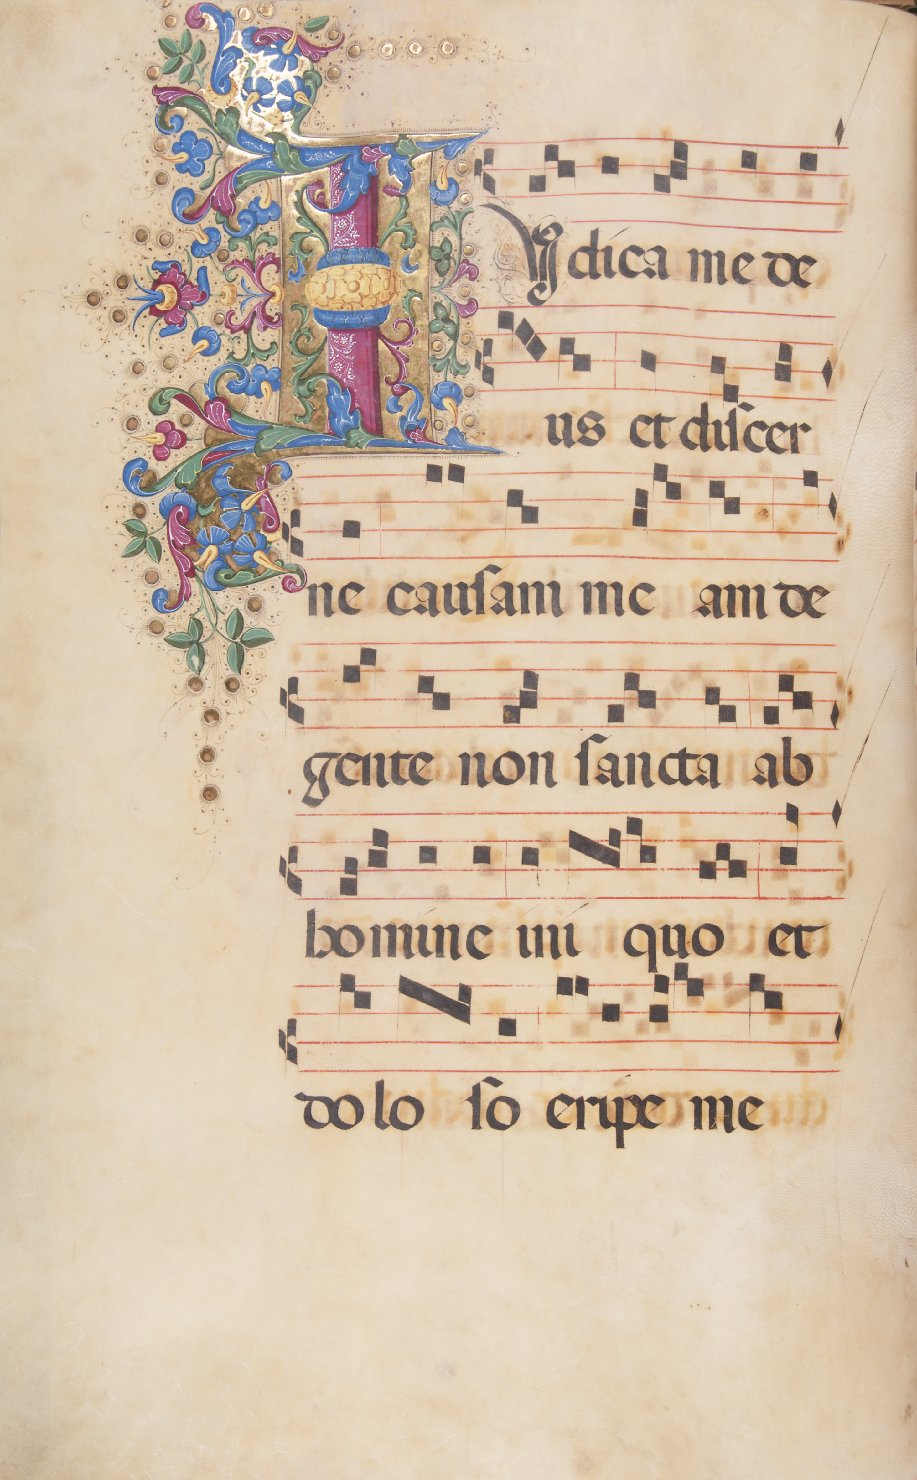 IYdica me de
us et discer
ne causam me am de
gente non sancta ab
bomine ini quo et
dolo so eripe me